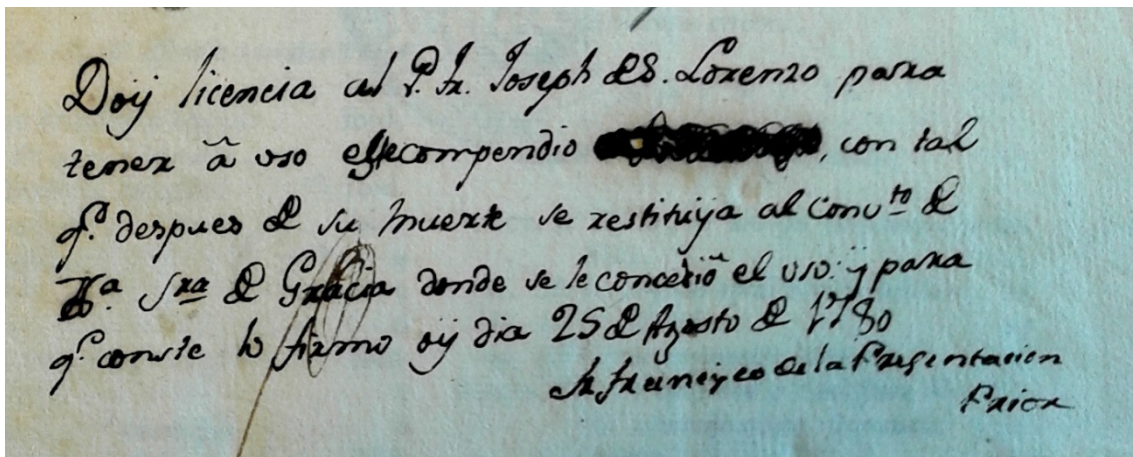 Doÿ licencia al P. Fr. Joseph de S. Lorenzo para
tener â uso este compendio , con tal
q.e despues de su muerte se restituÿa al Conv.to de
N.a Sra de Gracia donde se le concediô el uso: ÿ para
q.e conste lo firmo oÿ dia 25 de Agosto de 1780
Fr Francisco de la Presentacion
Prior